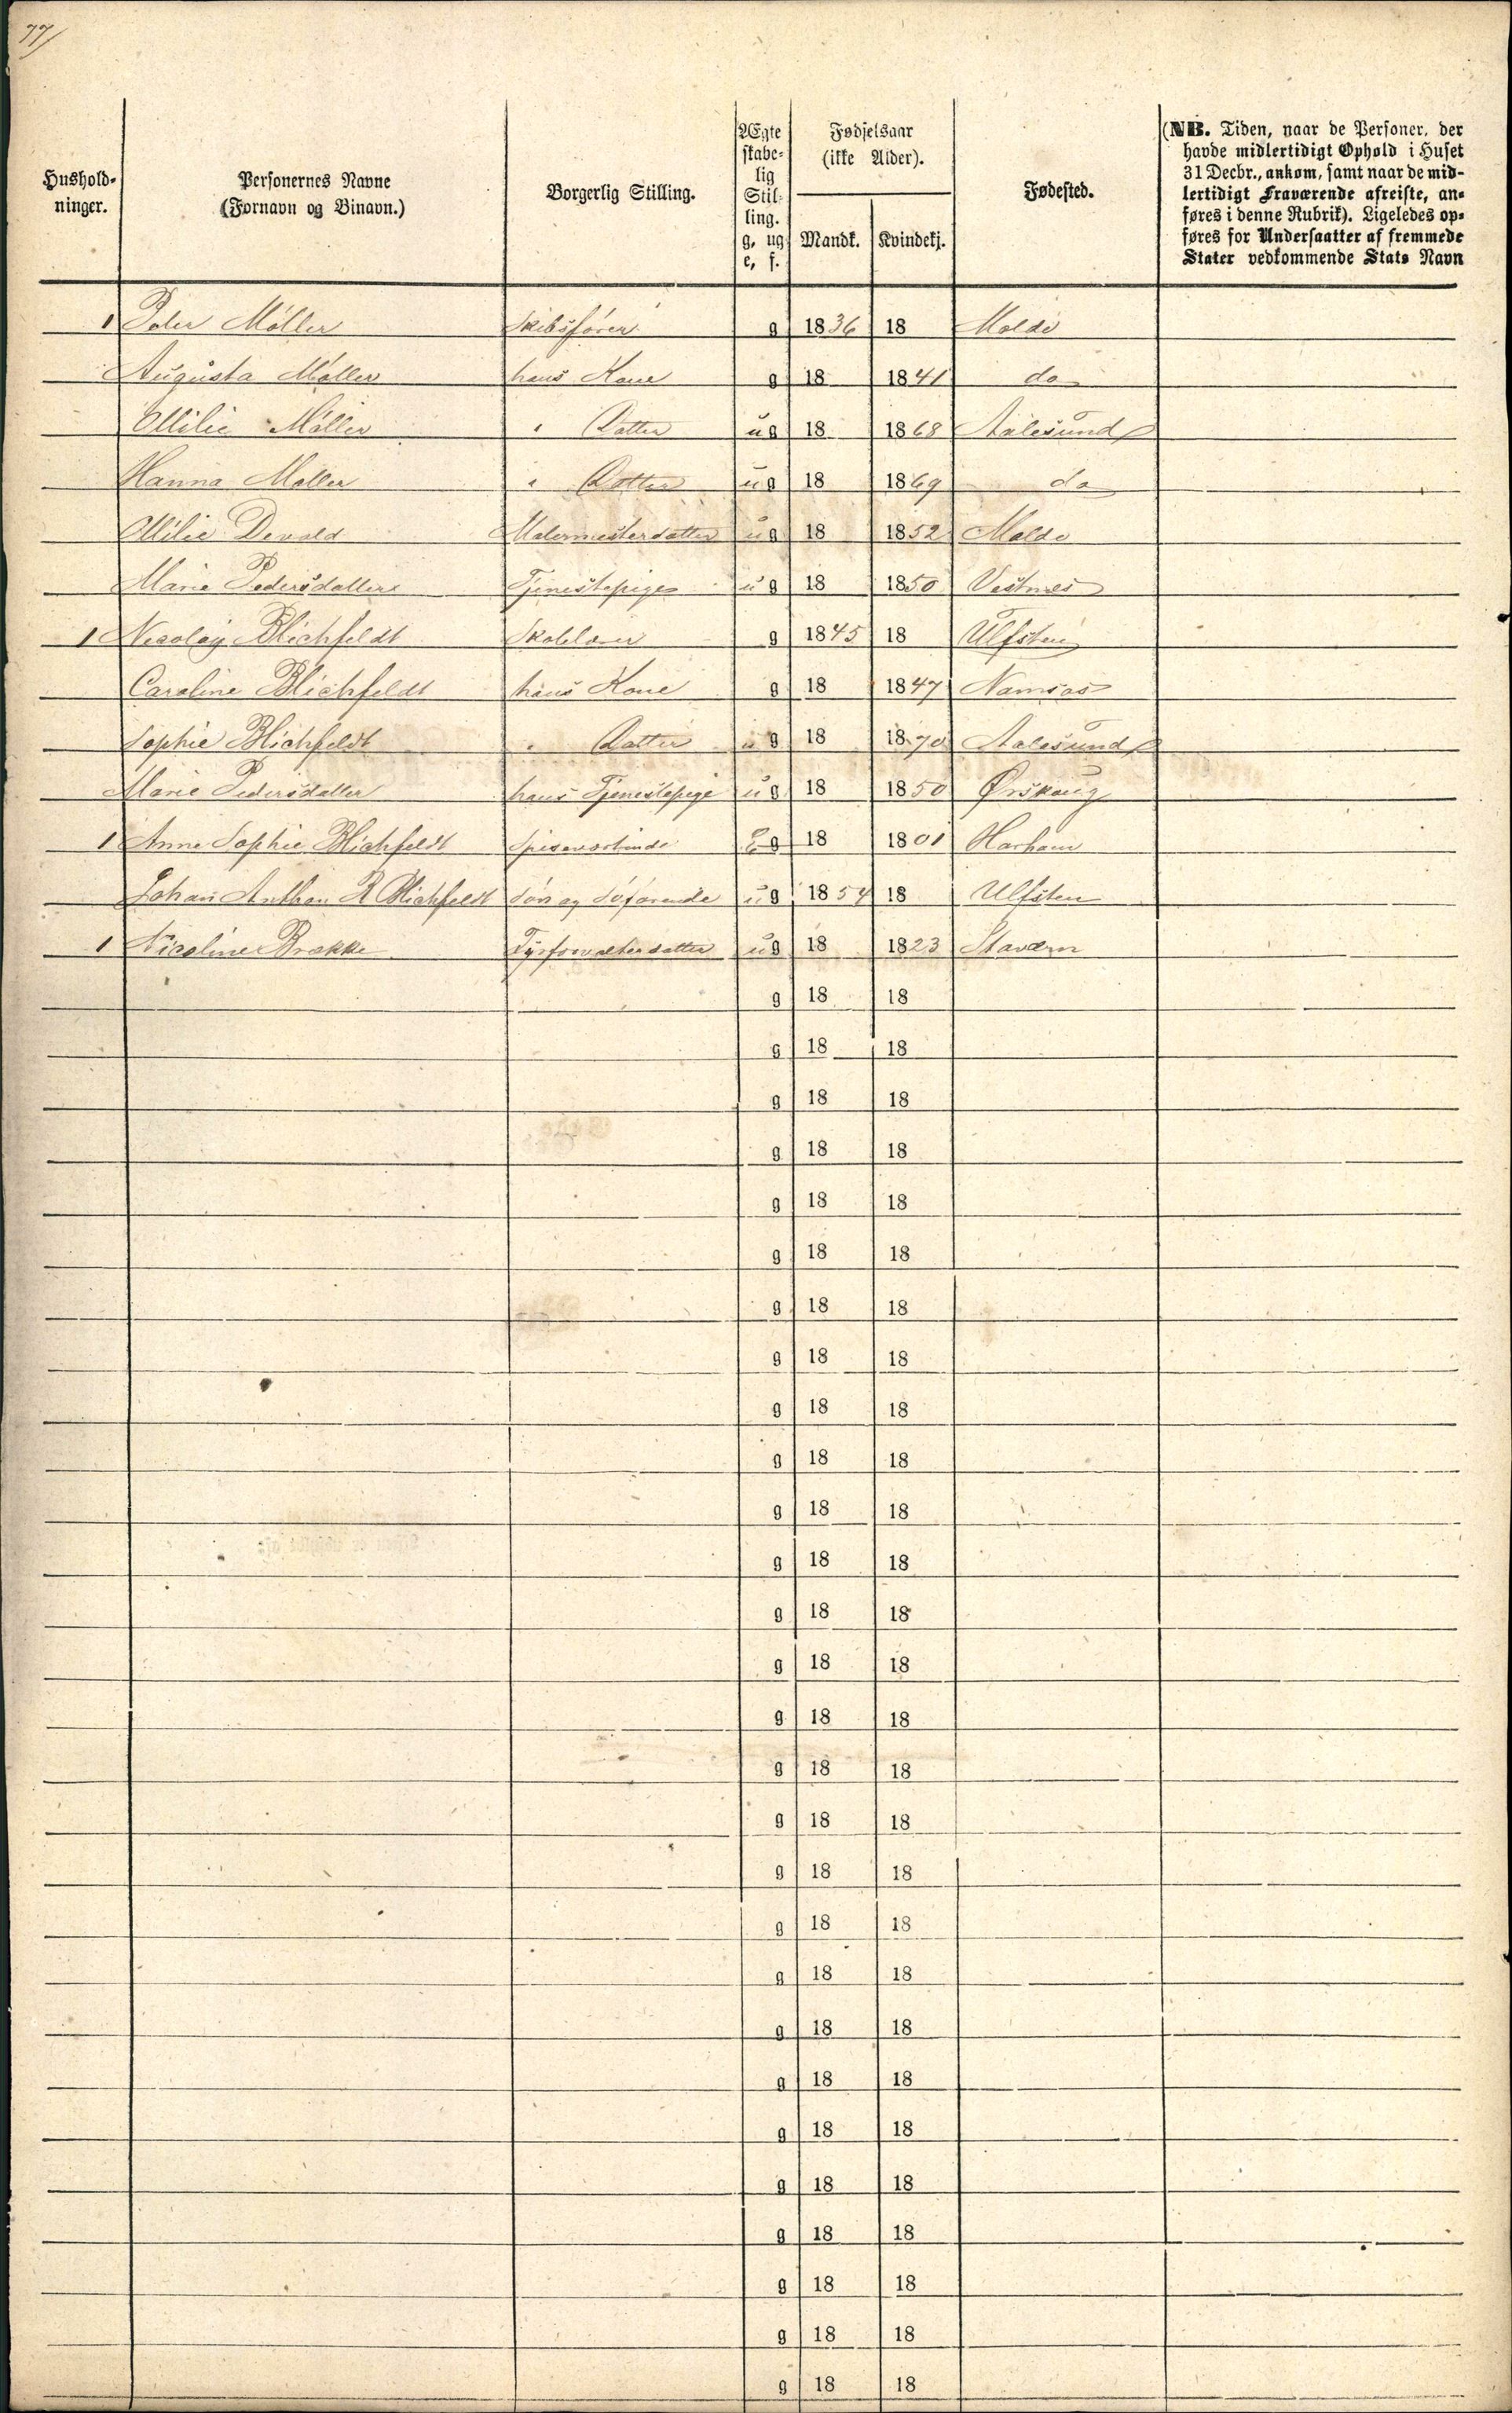 77/
Hushold-
ninger.
Personernes Navne
(Fornavn og Binavn.)
Borgerlig Stilling.
Ægte
skabe-
lig
Stil-
ling.
g, ug
e, f.
Fødselsaar
(ikke Alder).
Mandk.
Kvindekj.
Fødested.
(NB. Tiden, naar de Personer, der
havde midlertidigt Ophold i Huset
31 Decbr., ankom, samt naar de mid-
lertidigt Fraværende afreiste, an-
føres i denne Rubrik). Ligeledes op-
føres for Undersaatter af fremmede
Stater vedkommende Stats Navn
1 Peter Møller Skibsfører g 1836 18 Molde
Augusta Møller hans Kone g 18 1841 do
Ollilie Møller " Datter ug 18 1868 Aalesund
Hanna Møller " Datter ug 18 1869 do
Ollilie Devold Malermesterdatter ug 18 1852 Molde
Marie Pedersdatter Tjenestepige ug 18 1850 Vestnes
1 Nicolay Blichfeldt Skolelærer g 1845 18 Ulfsten
Caroline Blichfeldt hans Kone g 18 1847 Namsos
Sophie Blichfeldt " Datter ug 18 1870 Aalesund
Marie Pedersdatter hans Tjenestepige ug 18 1850 Ørskoug
1 Anne Sophie Blichfeldt Spisevertinde g 18 1801 Harham
Johan Anthon R Blichfeldt Søn og Søfarende ug 1854 18 Ulfsten
1 Nicoline Brække Fyrforvalterdatter ug 18 1823 Staværn
g 18 18
g 18 18
g 18 18
g 18 18
g 18 18
g 18 18
g 18 18
g 18 18
g 18 18
g 18 18
g 18 18
g 18 18
g 18 18
g 18 18
g 18 18
g 18 18
g 18 18
g 18 18
g 18 18
g 18 18
g 18 18
g 18 18
g 18 18
g 18 18
g 18 18
g 18 18
g 18 18
g 18 18